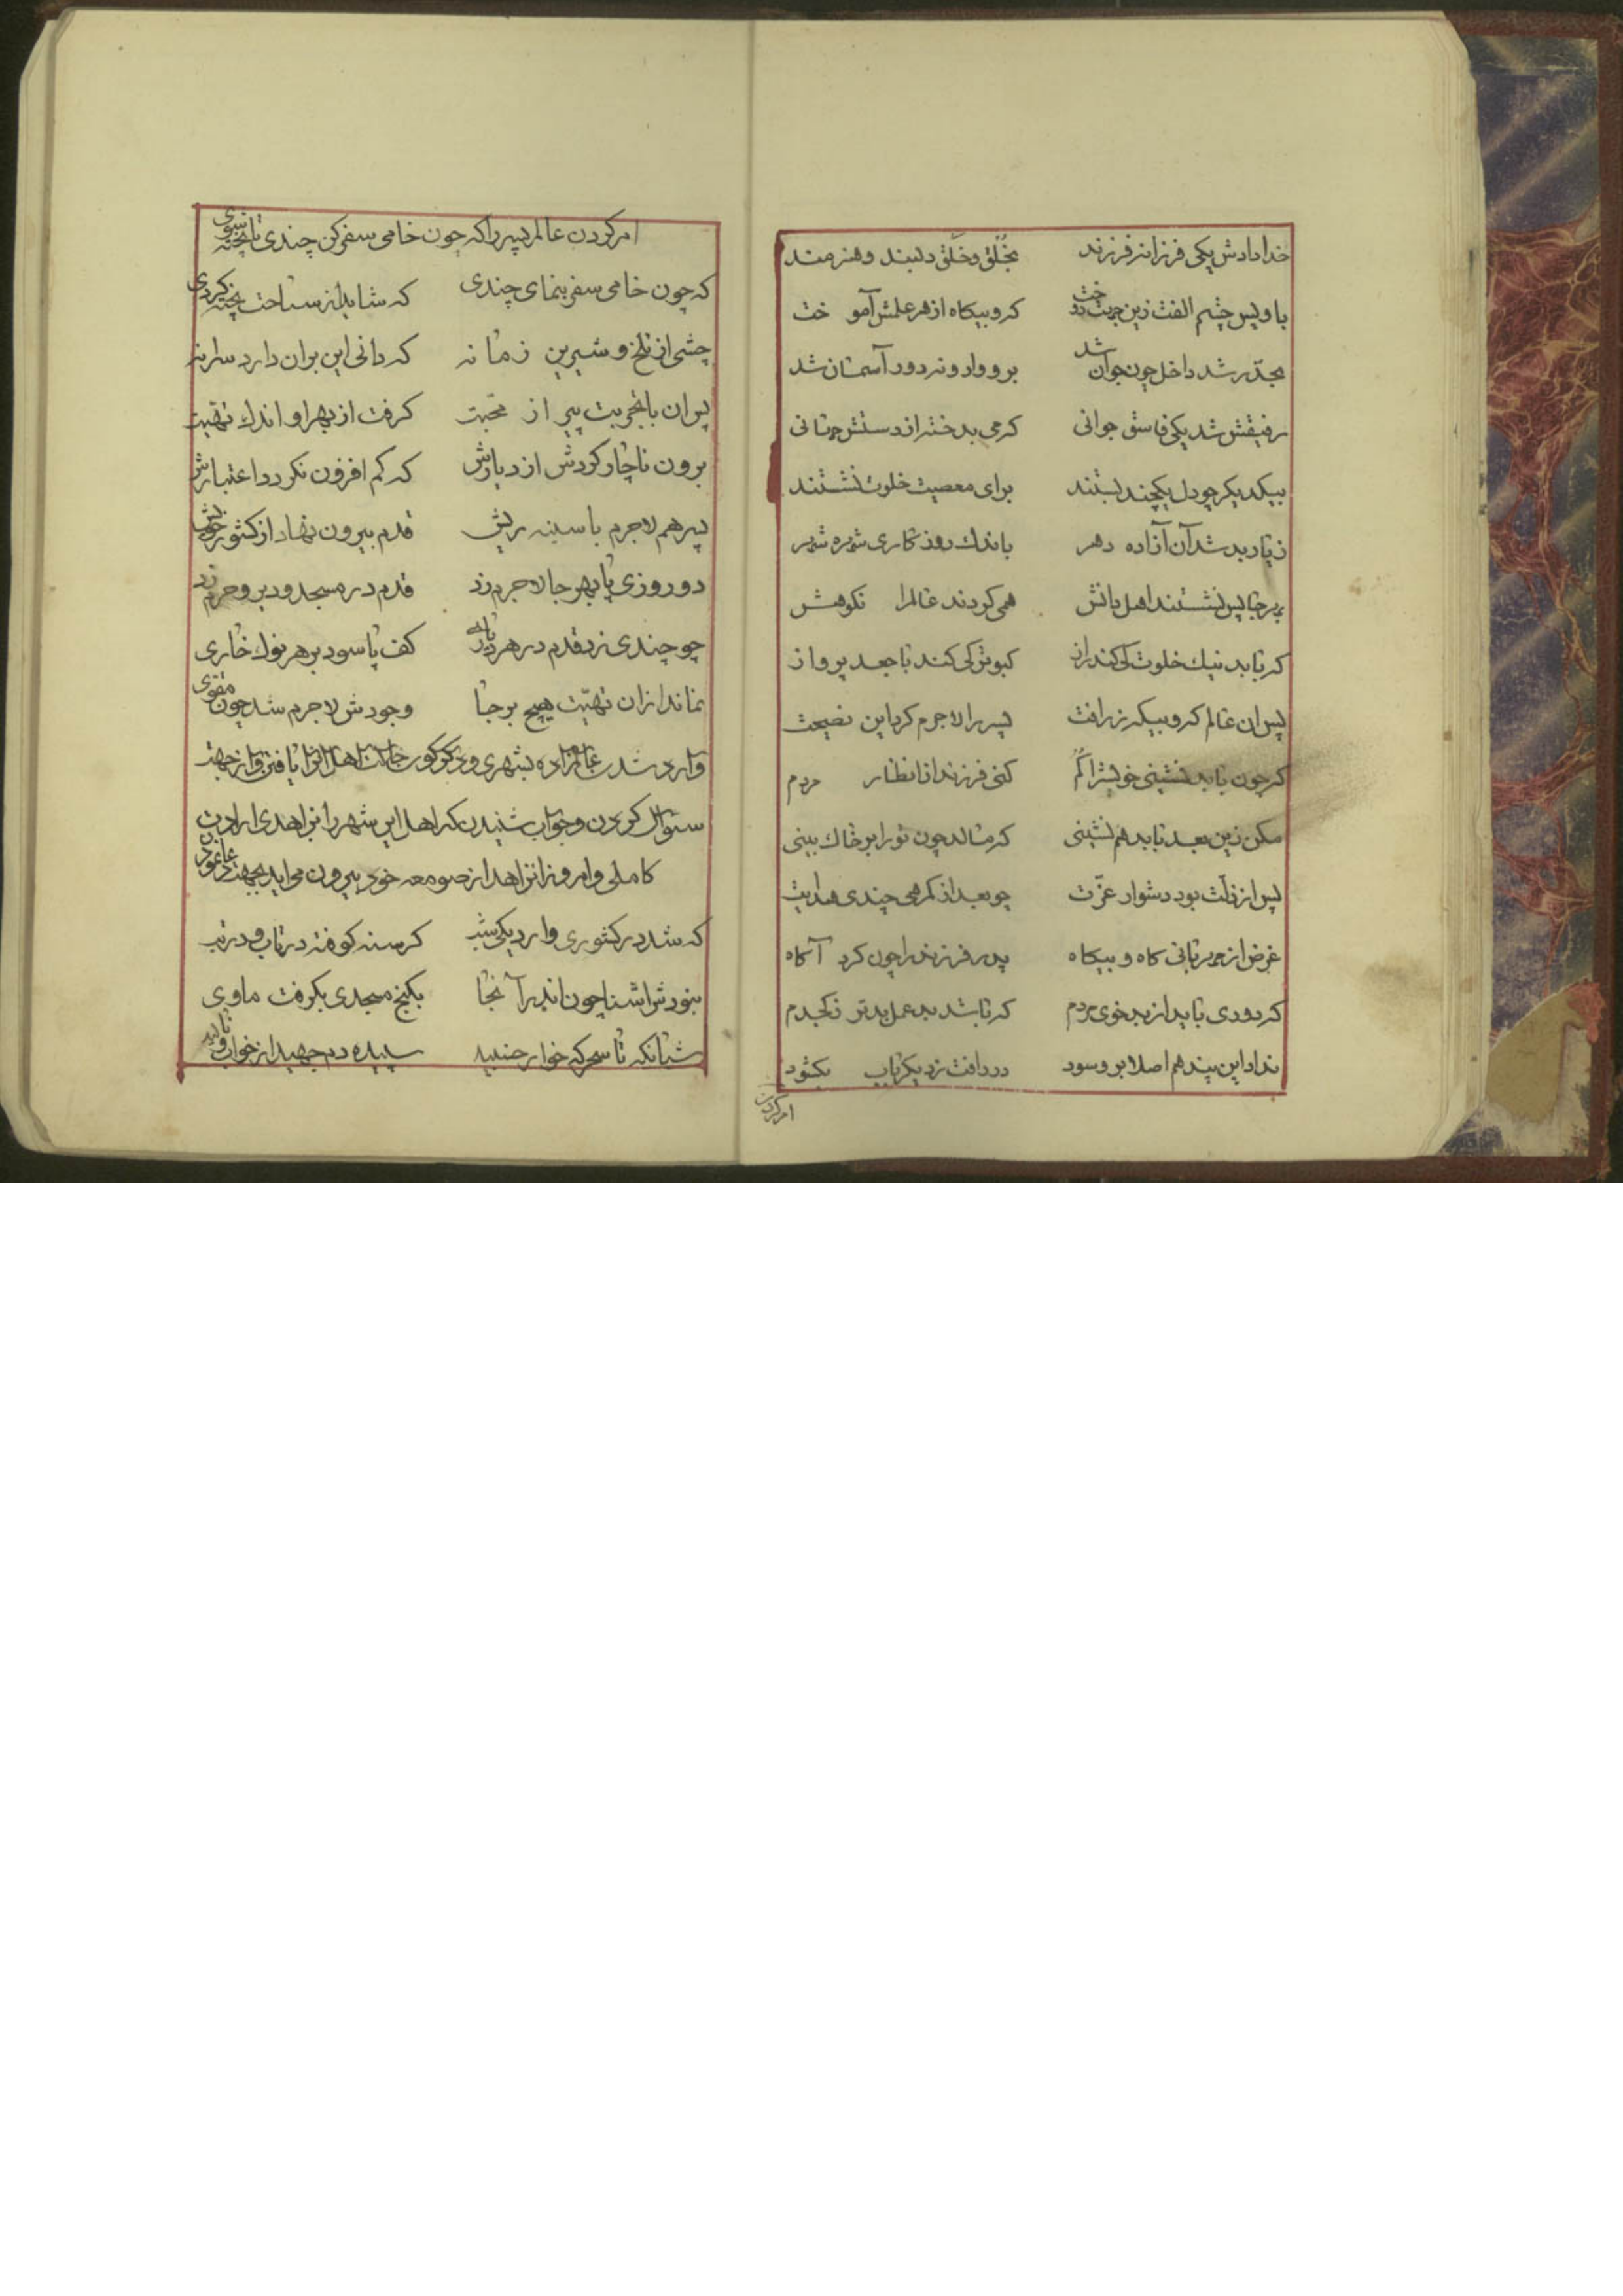 خدا دادش یکی فرزانه فرزند بخُلق و خَلق دلبند و هنرمند
باو پس چشم الفت زین جهت دوخت که و بیکاه از هر علمش آموخت
بحدّ رشد داخل چون جوان شد برو وارونه دور آسمان شد
رفیقش شد یکی فاسق جوانی که می بد خنثه از دستش جهانی
بیکدیکر چو دل یکچند بستند برای معصیت خلوت نشستند
زیار بد شد آن آزاده دهر باندك روزکاری شهره شهر
بهر جا پس نشستند اهل دانش همی کردند عالم را نکوهش
که با بد نیك خلوت کی کند راز کبوتر کی کند با جغد پرواز
پس ان عالم که و بیکه ز رافت پسر را لاجرم کرد این نصیحت
که چون با بد نشینی خویش را کُم کنی فرزند از انظار مردم
مکن زین بعد با بد هم نشینی که مالد چون تو را بر خاك بینی
پس از ذلّت بود دشوار عزّت چو بعد از کمرهی چندی هدایت
غرض از مهربانی کاه و بیکاه پدر فرزند را چون کرد آکاه
که دوری باید از بد خوی مردم که باشد بد عمل بدتر ز کجدم
نداد این پند هم اصلا برو سود در رافت ز دیکر باب بکشود
امر کردن
امر کردن عالم پسر را که چون خامی سفر کن چندی تا پخته شوی
که چون خامی سفر بنمای چندی که شاید از سیاحت پخته کردی
چشی از تلخ و شیرین زمانه که دانی این بران دارد سرانه
پس ان با تجربت پیر از محبت کرفت از بهر او اندك تهیّت
برون ناچار کردش از دیارش که کم افزون نکردد اعتبارش
پسر هم لاجرم با سینه ریش قدم بیرون نهاد از کشور خویش
دو روزی پا بهر جا لاجرم زد قدم در مسجد و دیر و حرم زد
چو چندی زد قدم در هر دیاری کف پا سود بر هر نوك خاری
نماند از ان تهیّت هیچ بر جا وجودش لاجرم شد چون مقوی
وارد شدن عالم زاده بشهری و دکرکون حالت اهل انرا یافتن و از جهة
سئوال کردن و جواب شنیدن که اهل این شهر را بزاهدی ارادت
کاملی و امروز انزاهد از صومعه خود بیرون می اید بجهة دعا نمودن
که شد در کشوری وارد یکی شب کرسنه کوفته در تاب و در تب
نبودش اشنا چون اندر آنجا بکنج مسجدی بکرفت ماوی
شبانکه تا سحرکه خوار خنبید سپیده دم جهید از خواب و نالید